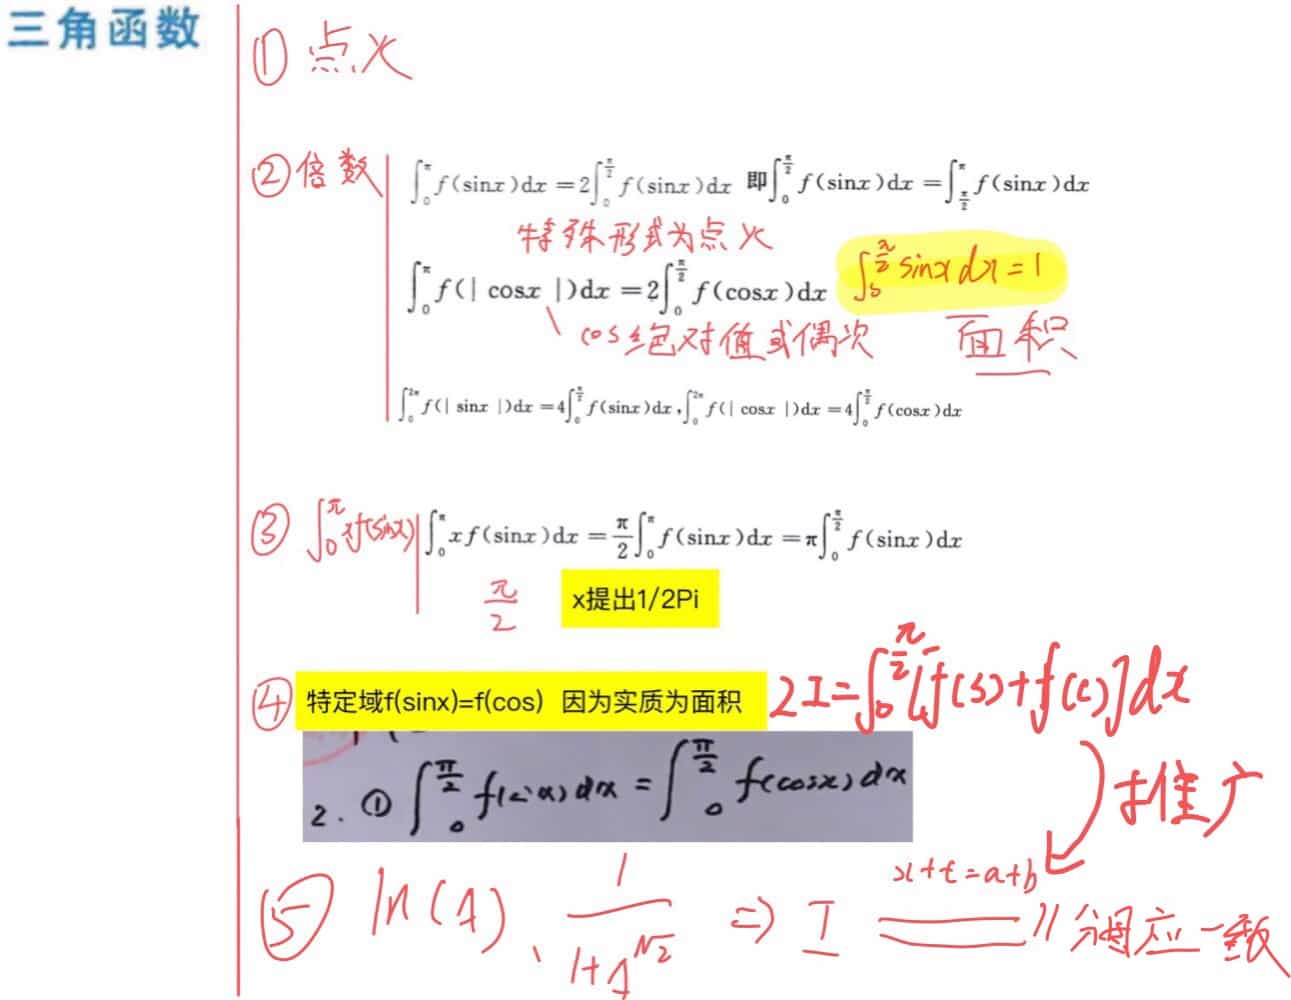 三角函数
① 点火
② 倍数
∫₀^π f(sinx)dx = 2∫₀^{π/2} f(sinx)dx 即∫₀^{π/2} f(sinx)dx = ∫_{π/2}^π f(sinx)dx
特殊形式为点火
∫₀^π f(| cosx |)dx = 2∫₀^{π/2} f(cosx)dx ∫₀^{π/2} sinx dx = 1
cos绝对值或偶次 面积
∫₀^{2π} f(| sinx |)dx = 4∫₀^{π/2} f(sinx)dx , ∫₀^{2π} f(| cosx |)dx = 4∫₀^{π/2} f(cosx)dx
③ ∫₀^π xf(sinx) ∫₀^π xf(sinx)dx = π/2 ∫₀^π f(sinx)dx = π∫₀^{π/2} f(sinx)dx
π/2 x提出1/2Pi
④ 特定域f(sinx)=f(cos) 因为实质为面积 2I=∫₀^{π/2}[f(s)+f(c)]dx
2. ① ∫₀^{π/2} f(sinx)dx = ∫₀^{π/2} f(cosx)dx
推广
x+t=a+b
⑤ ln(A)、1/(1+A^{√2}) ⇒ I = // 分周应一致